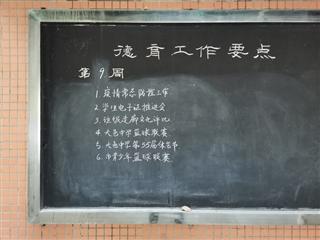 德育工作要点
第9周
1.疫情常态防控工作
2.学生电子证推进会
3.班级走廊文化评比
4.大邑中学篮球联赛
5.大邑中学第55届体育节
6.市青少年篮球联赛